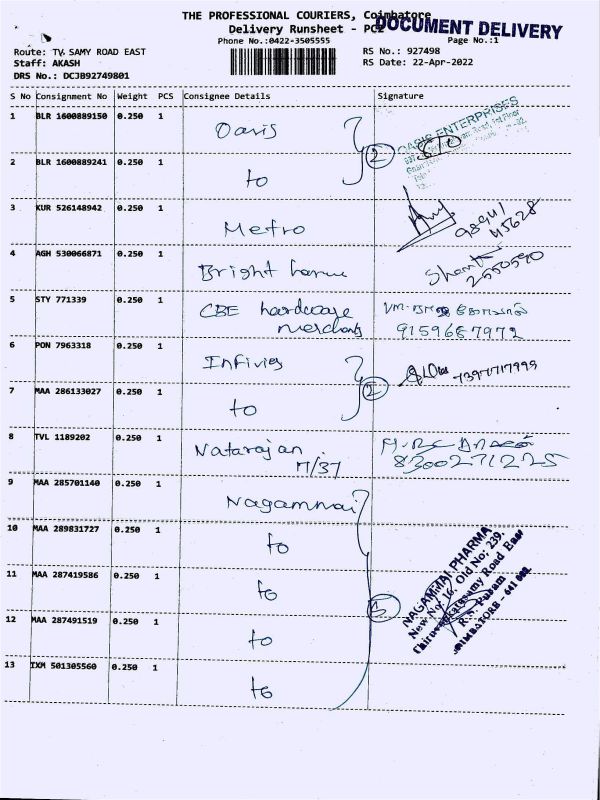 THE PROFESSIONAL COURIERS, Coimbatore
DOCUMENT DELIVERY
Delivery Runsheet - PC2
Phone No.:0422-3505555
Page No.:1
Route: TV SAMY ROAD EAST
RS No.: 927498
Staff: AKASH
RS Date: 22-Apr-2022
DRS No.: DCJB92749801
S No Consignment No Weight PCS Consignee Details Signature
1 BLR 1600889150 0.250 1 Oasis
OASIS ENTERPRISES
2
2 BLR 1600889241 0.250 1 to
3 KUR 526148942 0.250 1 Metro
98941
45628
4 AGH 530066871 0.250 1 Bright home
2550590
5 STY 771339 0.250 1 CBE hardware
merchants
9159687972
6 PON 7963318 0.250 1 Infivies
2
7 MAA 286133027 0.250 1 to
8 TVL 1189202 0.250 1 Natarajan
17/37
8300271225
9 MAA 285701140 0.250 1 Nagammai
10 MAA 289831727 0.250 1 to
NAGAMMAI PHARMA
New No: 16, Old No: 239,
Thiruvenkatasamy Road East
R.S. Puram
COIMBATORE - 641 002
11 MAA 287419586 0.250 1 to
5
12 MAA 287491519 0.250 1 to
13 IXM 501305560 0.250 1 to